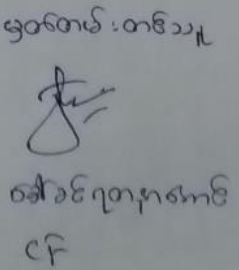 မှတ်တမ်းတင်သူ
ဒေါ်ခင်ရတနာအောင်
CF